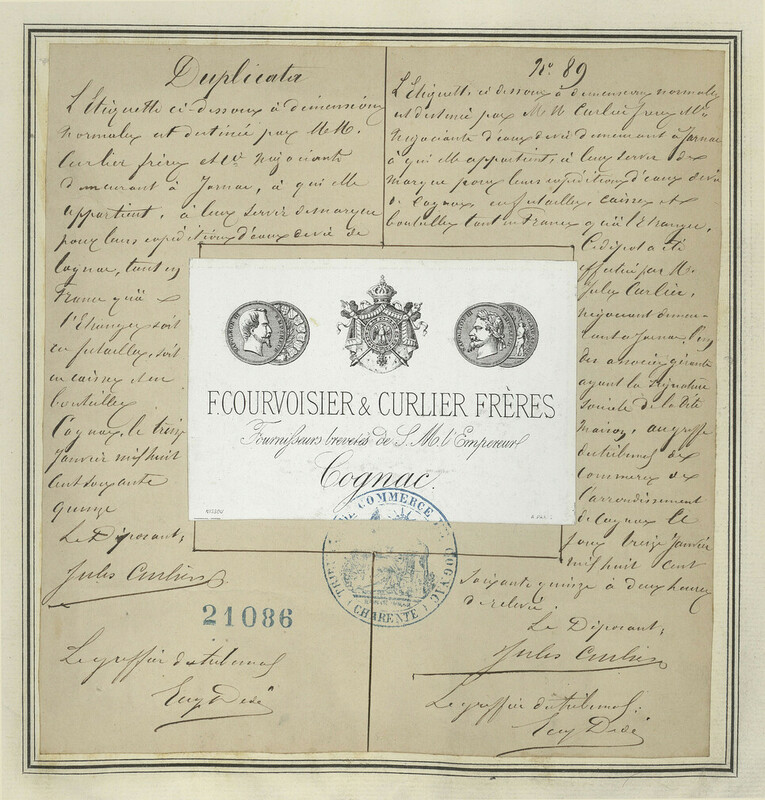 Duplicata
L'Etiquette ci-dessous à dimensions
normales est destinée par M.M.
Curlier frères et Cie négociants
demeurant à Jarnac, à qui elle
appartient, à leur servir de marque
pour leurs expéditions d'eaux de vie de
Cognac, tant en
France qu'à
l'Etranger soit
en futailles, soit
en caisses et en
bouteilles
Cognac, le treize
Janvier mil huit
cent soixante
quinze
Le Déposant,
Jules Curlier
21086
Le greffier du tribunal
No. 89
L'Etiquette ci dessous à dimensions normales
est destinée par M.M. Curlier frères
négociants d'eaux de vie demeurant à Jarnac
à qui elle appartient, à leur servir de
marque pour leurs expéditions d'eaux de vie
de Cognac, en futailles, caisses et
bouteilles tant en France qu'à l'Etranger.
Ce dépôt a été
effectué par M.
Jules Curlier,
négociant demeu-
rant à Jarnac, l'un
des associés gérants
ayant la signature
sociale de la dite
maison, au greffe
du tribunal de
Commerce de
l'arrondissement
de Cognac le
jour treize Janvier
mil huit cent
soixante quinze à deux heures
de relevée
Le Déposant,
Jules Curlier
Le greffier du tribunal:
NAPOLEON III EMPEREUR
NAPOLEON III
F. COURVOISIER & CURLIER FRÈRES
Fournisseurs brevetés de S. M. l'Empereur
Cognac.
COMMERCE DE COGNAC
CHARENTE